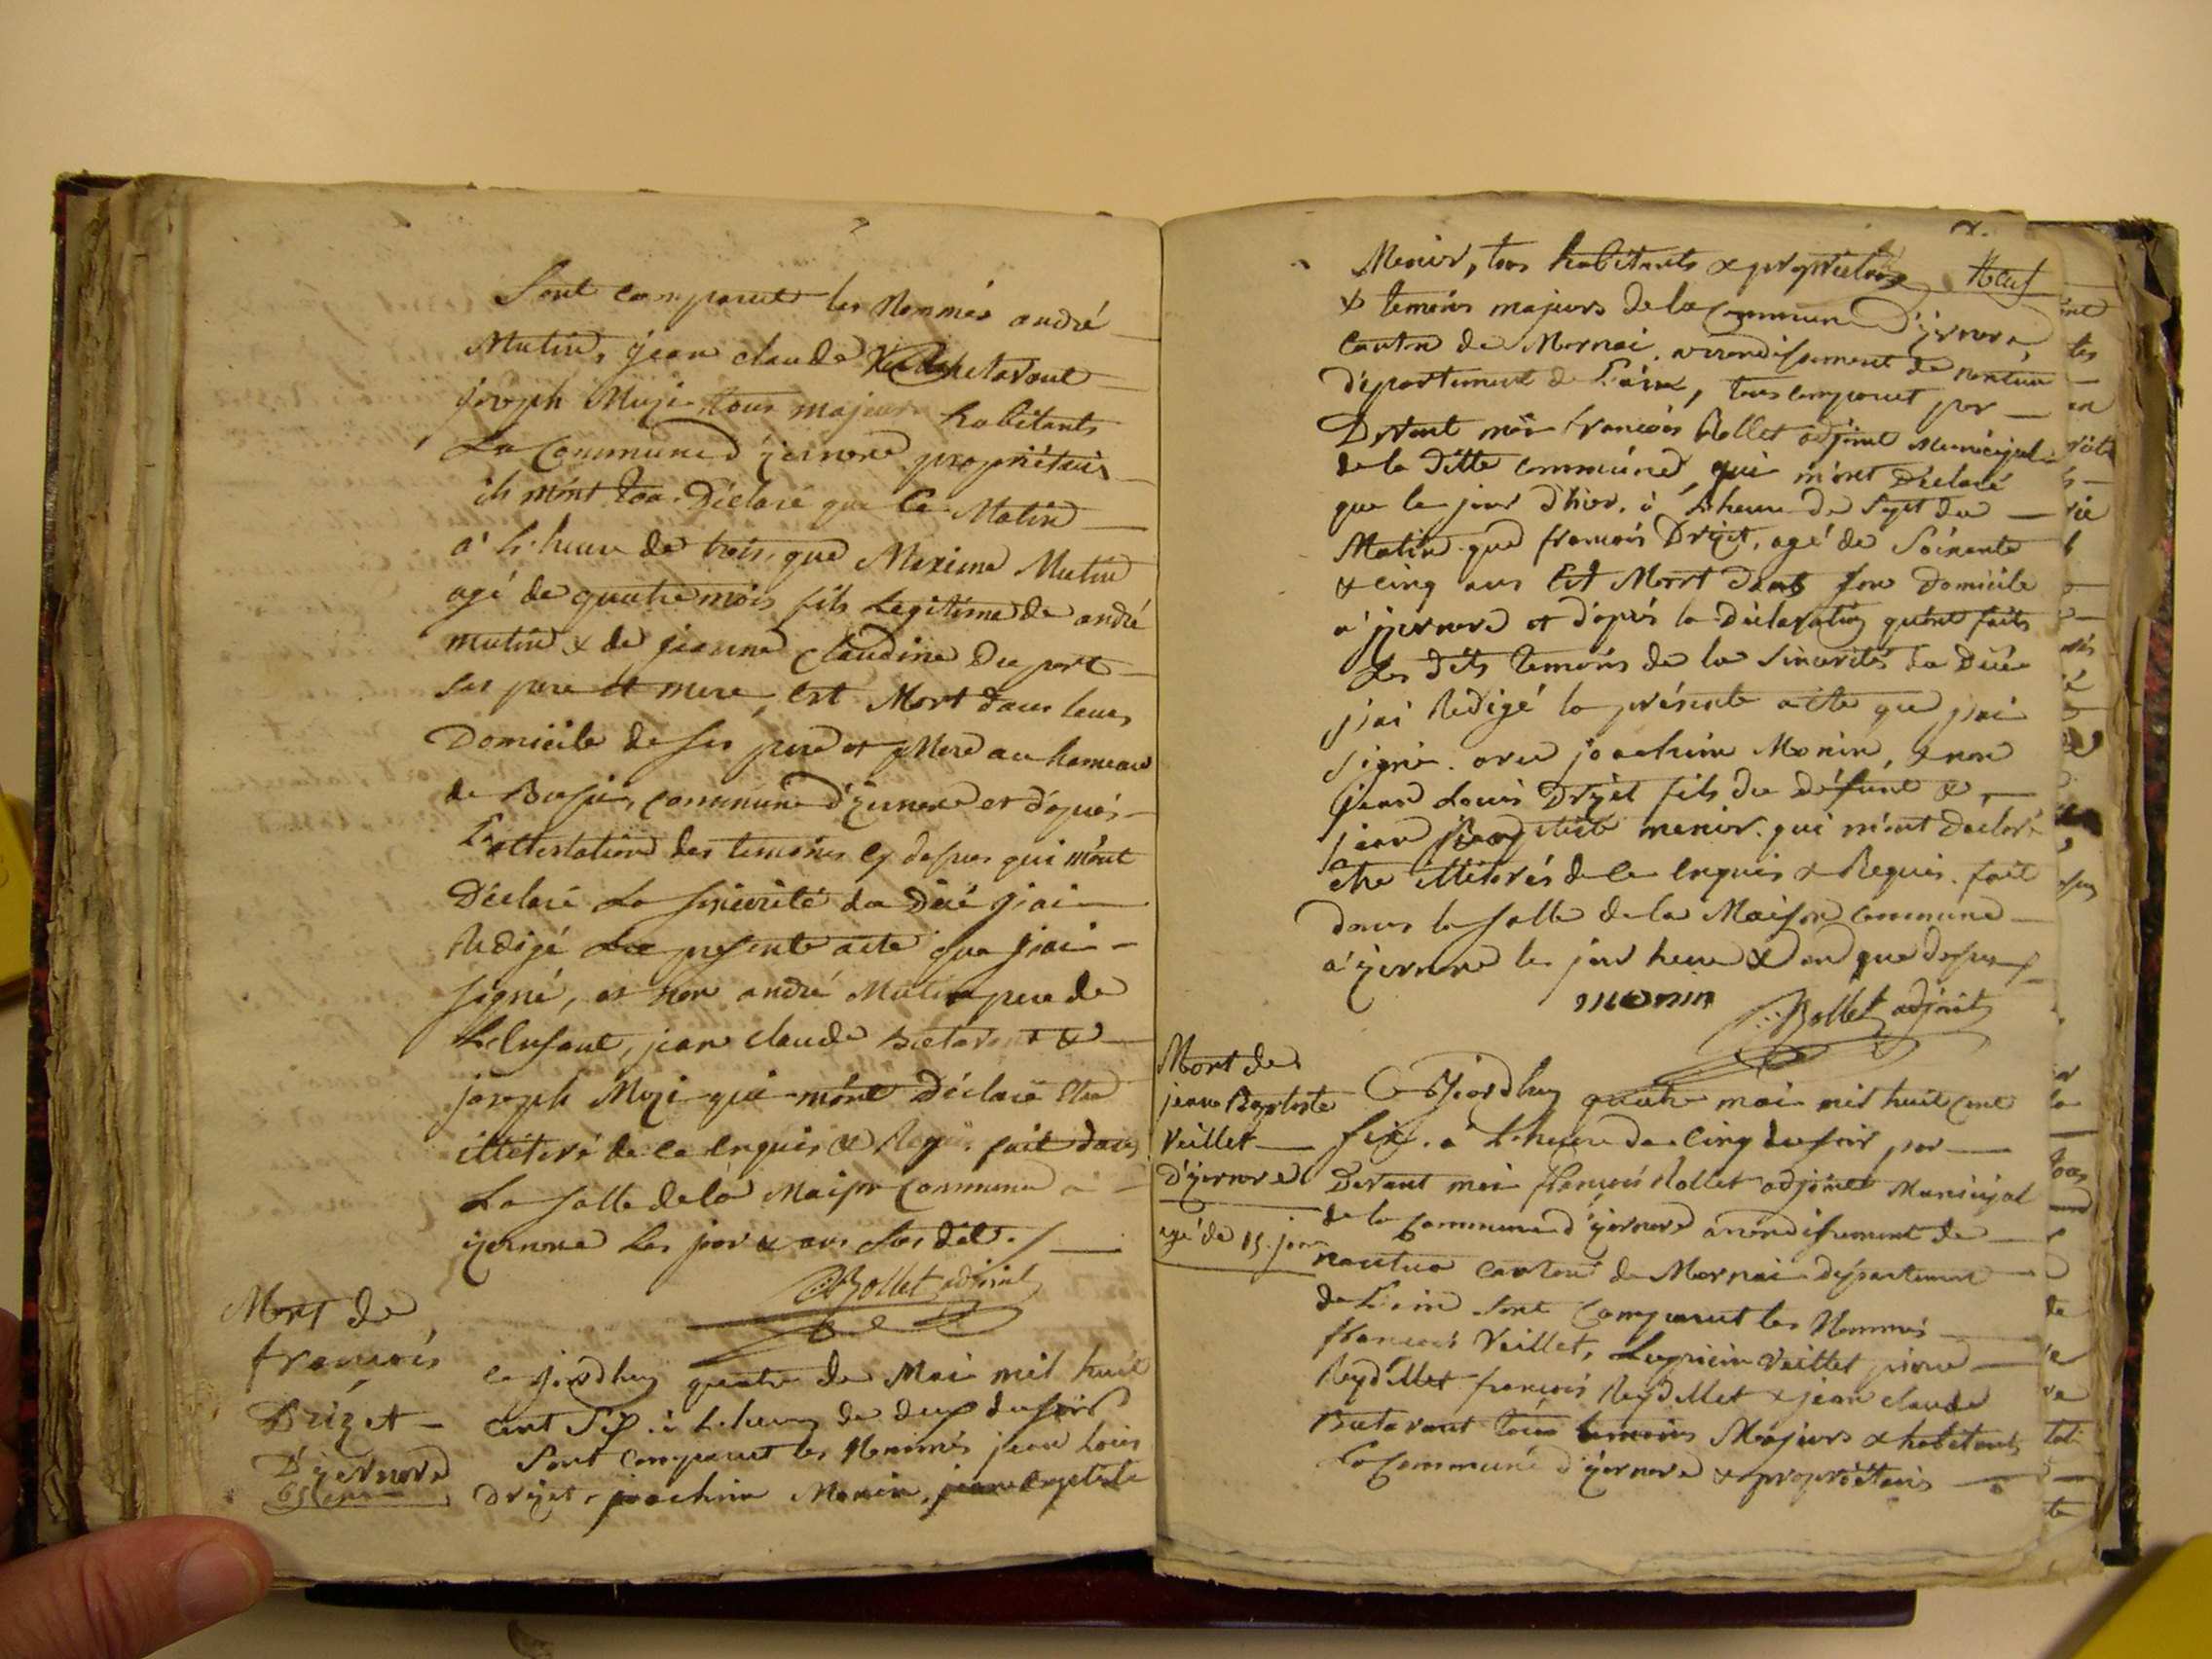 Sont comparut les Nommés andré
Mutin, jean claude Bietavant
joseph Muzi tous majeurs habitants
La Commune d'yzernore propriétais
ils mónt tous Déclaré que Ce Matin
a' L'heure de trois, que Maxime Mutin
agé de quatre mois fils Legitime de andré
mutin & de jeanne Claudine Du port
ses pere et mere, est Mort dans leurs
Domicile de ses pere et Mere au hameau
de Bussi, commune d'yzernore et d'apres
L'attestation des temoins cy dessus qui mónt
Déclaré La sincerité du Décé j'ai
Redigé La presente acte que j'ai
signé, et non andré Mutin pere de
L'Enfant, jean claude Bietavant &
joseph Mozi qui mónt Déclaré Etre
illiteré de ce enquis & Requis. fait dans
La salle de la Maison Commune a
yzernore Les jour & ans sus dit. /
Rollet adjoint
Mort de
francois
Drizet
D'yzernore
65 ans
ce jourdhuy quatre de Mai mil huit
cent Six à L'heure de deux du soir
Sont comparut les Nommés jean louis
Drizet, joachim Monin, jean baptiste
Neuf
Menier, tous habitants & propriétaires
& temoins majeurs de la Commune d'yzernore,
Canton de Mornai, arrondissement de nantua
département de L'ain, tous comparut par
Devant moi francois Rollet adjoint Municipal
de la Ditte commune, qui mónt Déclaré
que le jour d'hier, à L'heure de Sept du
Matin que francois Drizet, agé de Soixante
& cinq ans Est Mort dans son Domicile
a' yzernore et d'apres la Déclaration quónt faits
Les dits temoins de la Sincerité du Décé
j'ai Redigé la présente acte que j'ai
signé. avec joachim Monin, & non
jean Louis Drizet fils du défunt &
jean Baptiste menier. qui mónt declaré
etre illiterés de ce enquis & Requis. fait
dans la salle de la Maison commune
a' yzernore les jour heure & an que dessus
monin
Rollet adjoint
Mort de
jean Baptiste
Veillet
d'yzernore
agé de 15. jours
Ce Jourdhuy quatre mai mil huit cent
six. a' L'heure de cinq du soir par
Devant moi francois Rollet adjoint Municipal
de la Commune d'yzernore arrondissement de
nantua canton de Mornai département
de L'ain sont Comparut les Nommés
francois Veillet, Veillet pierre
Reydellet francois Reydellet & jean claude
Bietavant tous temoins Majeurs & habitants
La Commune d'yzernore & propriétais